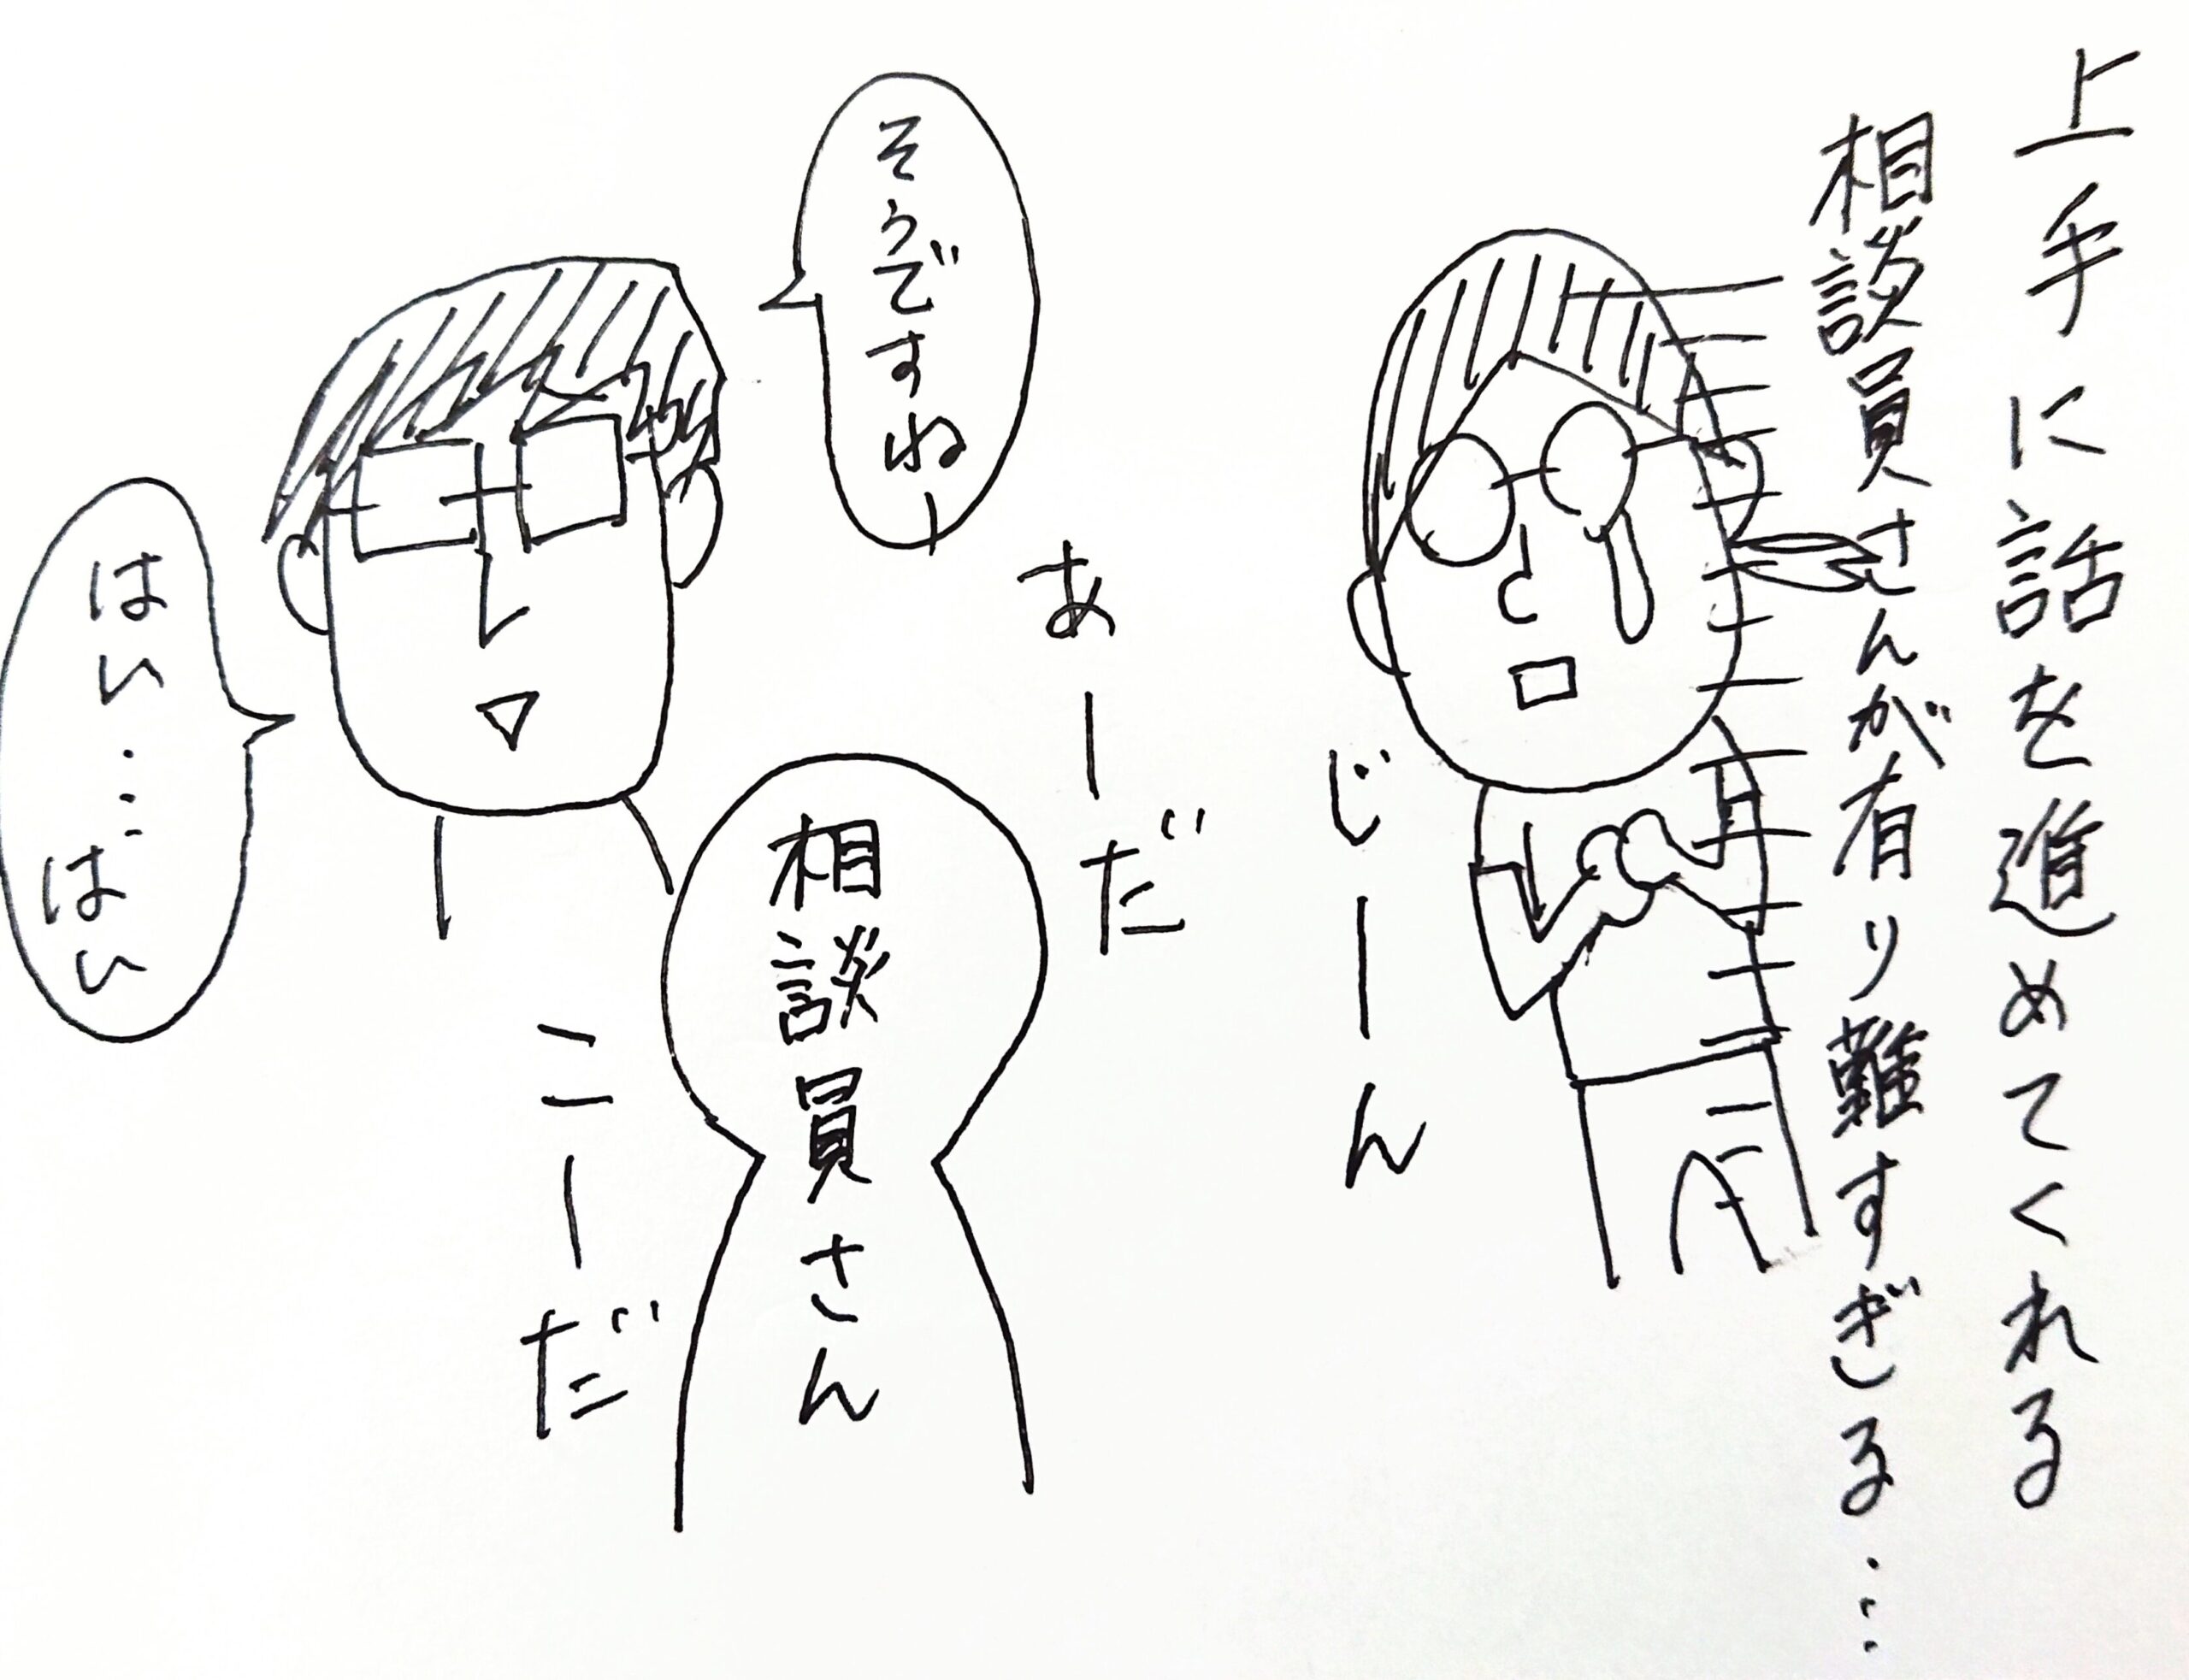 上手に話を進めてくれる
相談員さんが有り難すぎる…
じーん
あーだ
こーだ
相談員さん
そうですねー
はい…はい